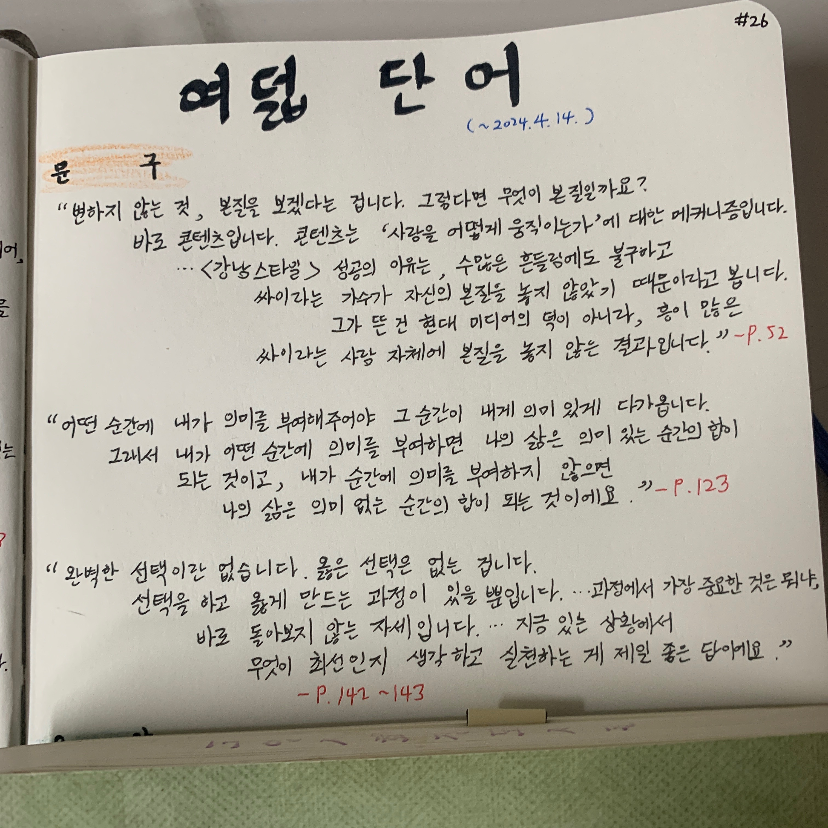 #26
여덟 단어
(~2024.4.14.)
문 구
"변하지 않는 것, 본질을 보겠다는 겁니다. 그렇다면 무엇이 본질일까요?
바로 콘텐츠입니다. 콘텐츠는 '사람을 어떻게 움직이는가'에 대한 메커니즘입니다.
… <강남스타일> 성공의 이유는, 수많은 흔들림에도 불구하고
싸이라는 가수가 자신의 본질을 놓지 않았기 때문이라고 봅니다.
그가 뜬 건 현대 미디어의 덕이 아니라, 흥이 많은
싸이라는 사람 자체에 본질을 놓지 않은 결과입니다." -P.52
"어떤 순간에 내가 의미를 부여해주어야 그 순간이 내게 의미 있게 다가옵니다.
그래서 내가 어떤 순간에 의미를 부여하면 나의 삶은 의미 있는 순간의 합이
되는 것이고, 내가 순간에 의미를 부여하지 않으면
나의 삶은 의미 없는 순간의 합이 되는 것이에요." -P.123
"완벽한 선택이란 없습니다. 옳은 선택은 없는 겁니다.
선택을 하고 옳게 만드는 과정이 있을 뿐입니다. …과정에서 가장 중요한 것은 뭐냐,
바로 돌아보지 않는 자세입니다. … 지금 있는 상황에서
무엇이 최선인지 생각하고 실천하는 게 제일 좋은 답이에요."
-P.142~143